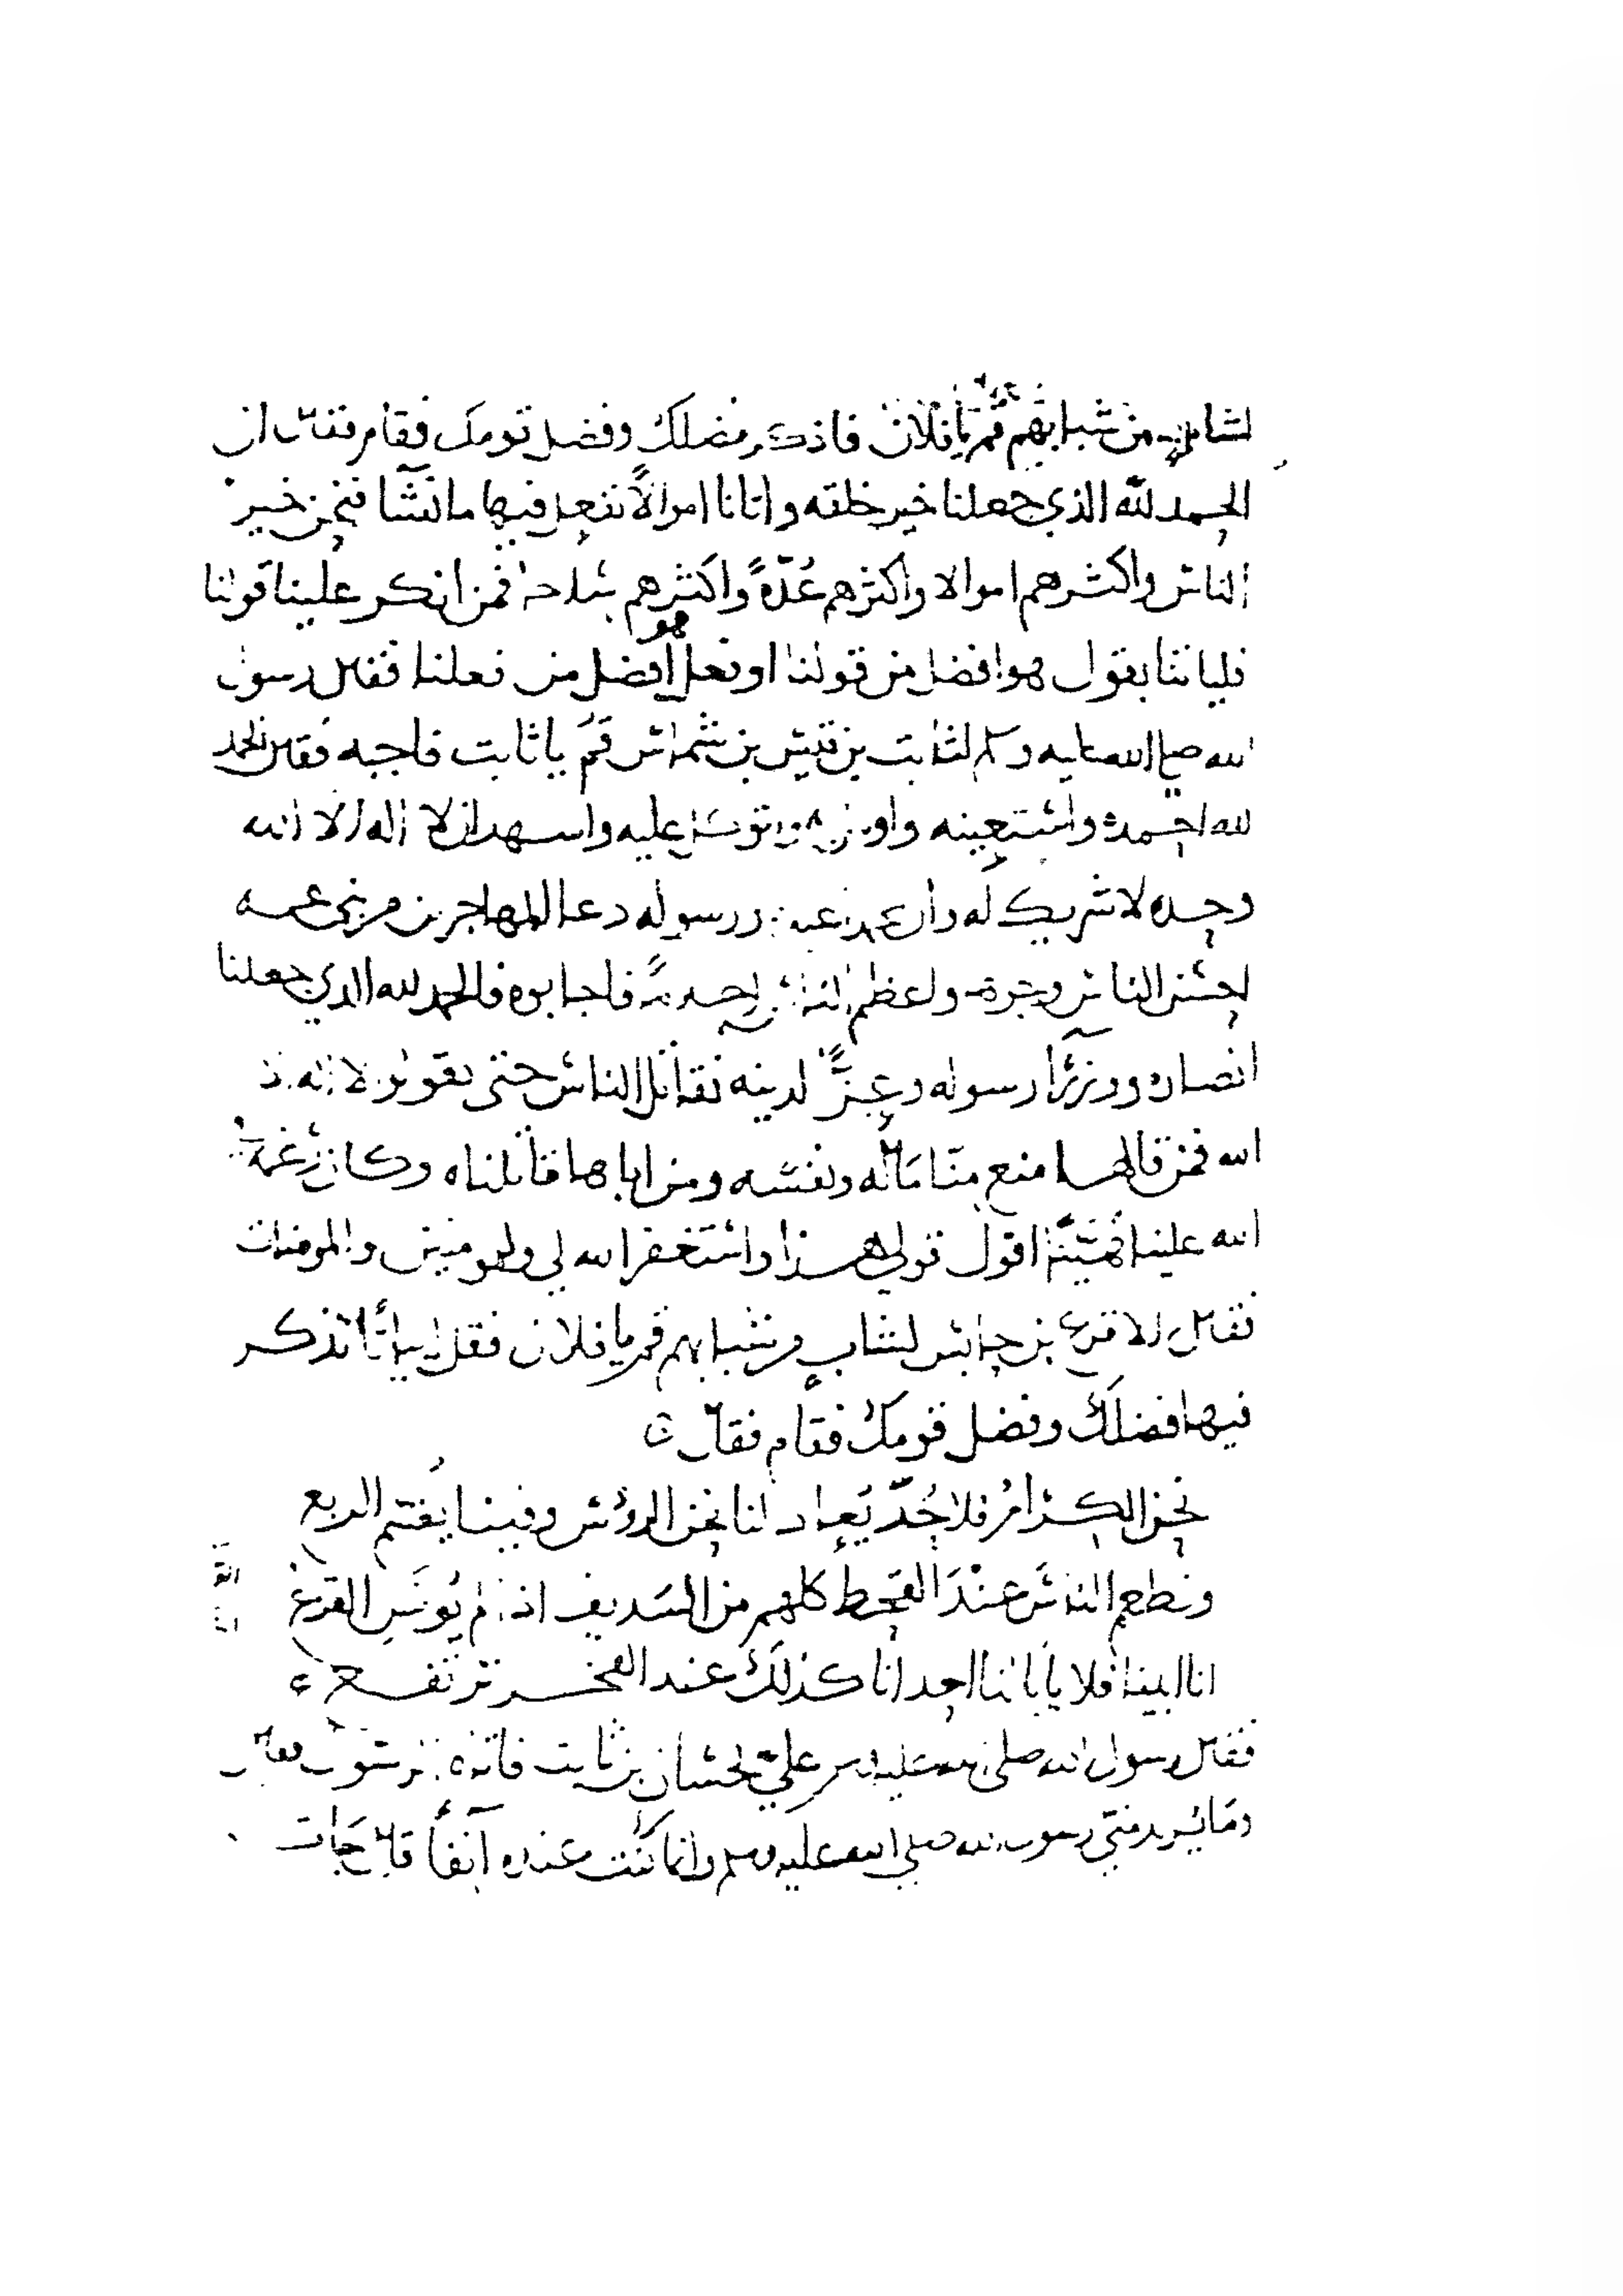 لشاب من شبابهم قم يا فلان فاذكر فضلك وفضل قومك فقام فقال ان
الحمد لله الذي جعلنا خير خلقه واتانا اموالاً نفعل فيها ما نشآ فنحن خير
الناس واكثرهم اموالا واكثرهم عُدّةً واكثرهم سلاحا فمن انكر علينا قولنا
فلياتنا بقول هو افضل من قولنا او فعل هو افضل من فعلنا فقال رسول
الله صلى الله عليه وسلم لثابت بن قيس بن شماس قُم يا ثابت فاجبه فقال الحمد
لله احمده واستعينه واومن به واتوكل عليه واشهد ان لا اله الا الله
وحده لا شريك له وان محمدا عبده ورسوله دعا المهاجرين من بني عمه
احسن الناس وجوها واعظم الناس احلامًا فاجابوه فالحمد لله الذي جعلنا
انصاره ووزرآ رسوله وعزًّا لدينه نقاتل الناس حتى يقولوا لا اله الا
الله فمن قالها منع منّا مَاله ونفسه ومن اباها قاتلناه وكان رغمه
الله علينا هينا اقول قولي هذا واستغفر الله لي وللمومنين والمومنات
فقال الاقرع بن حابس لشابٍ من شبابهم قم يا فلان فقل ابياتًا تذكر
فيها فضلك وفضل قومك فقام فقال
نحن الكرامُ فلا حُدّ يَعادلنا نحن الرؤس وفينا يُقتسم الربع
ونطعم الناسَ عنْدَ القحط كلهم من السَديف اذا لم يُونَسِ القزع
انا ابينا فلا يأبا لنا احد انا كذلك عند الفخر نرتفع
فقال رسول الله صلى الله عليه وسلم عليّ بحسان بن ثابت فاتاه الرسول فقال
ومَا يُريد منّي رسول الله صلى الله عليه وسلم وانما كُنت عنده آنفًا قال جَات